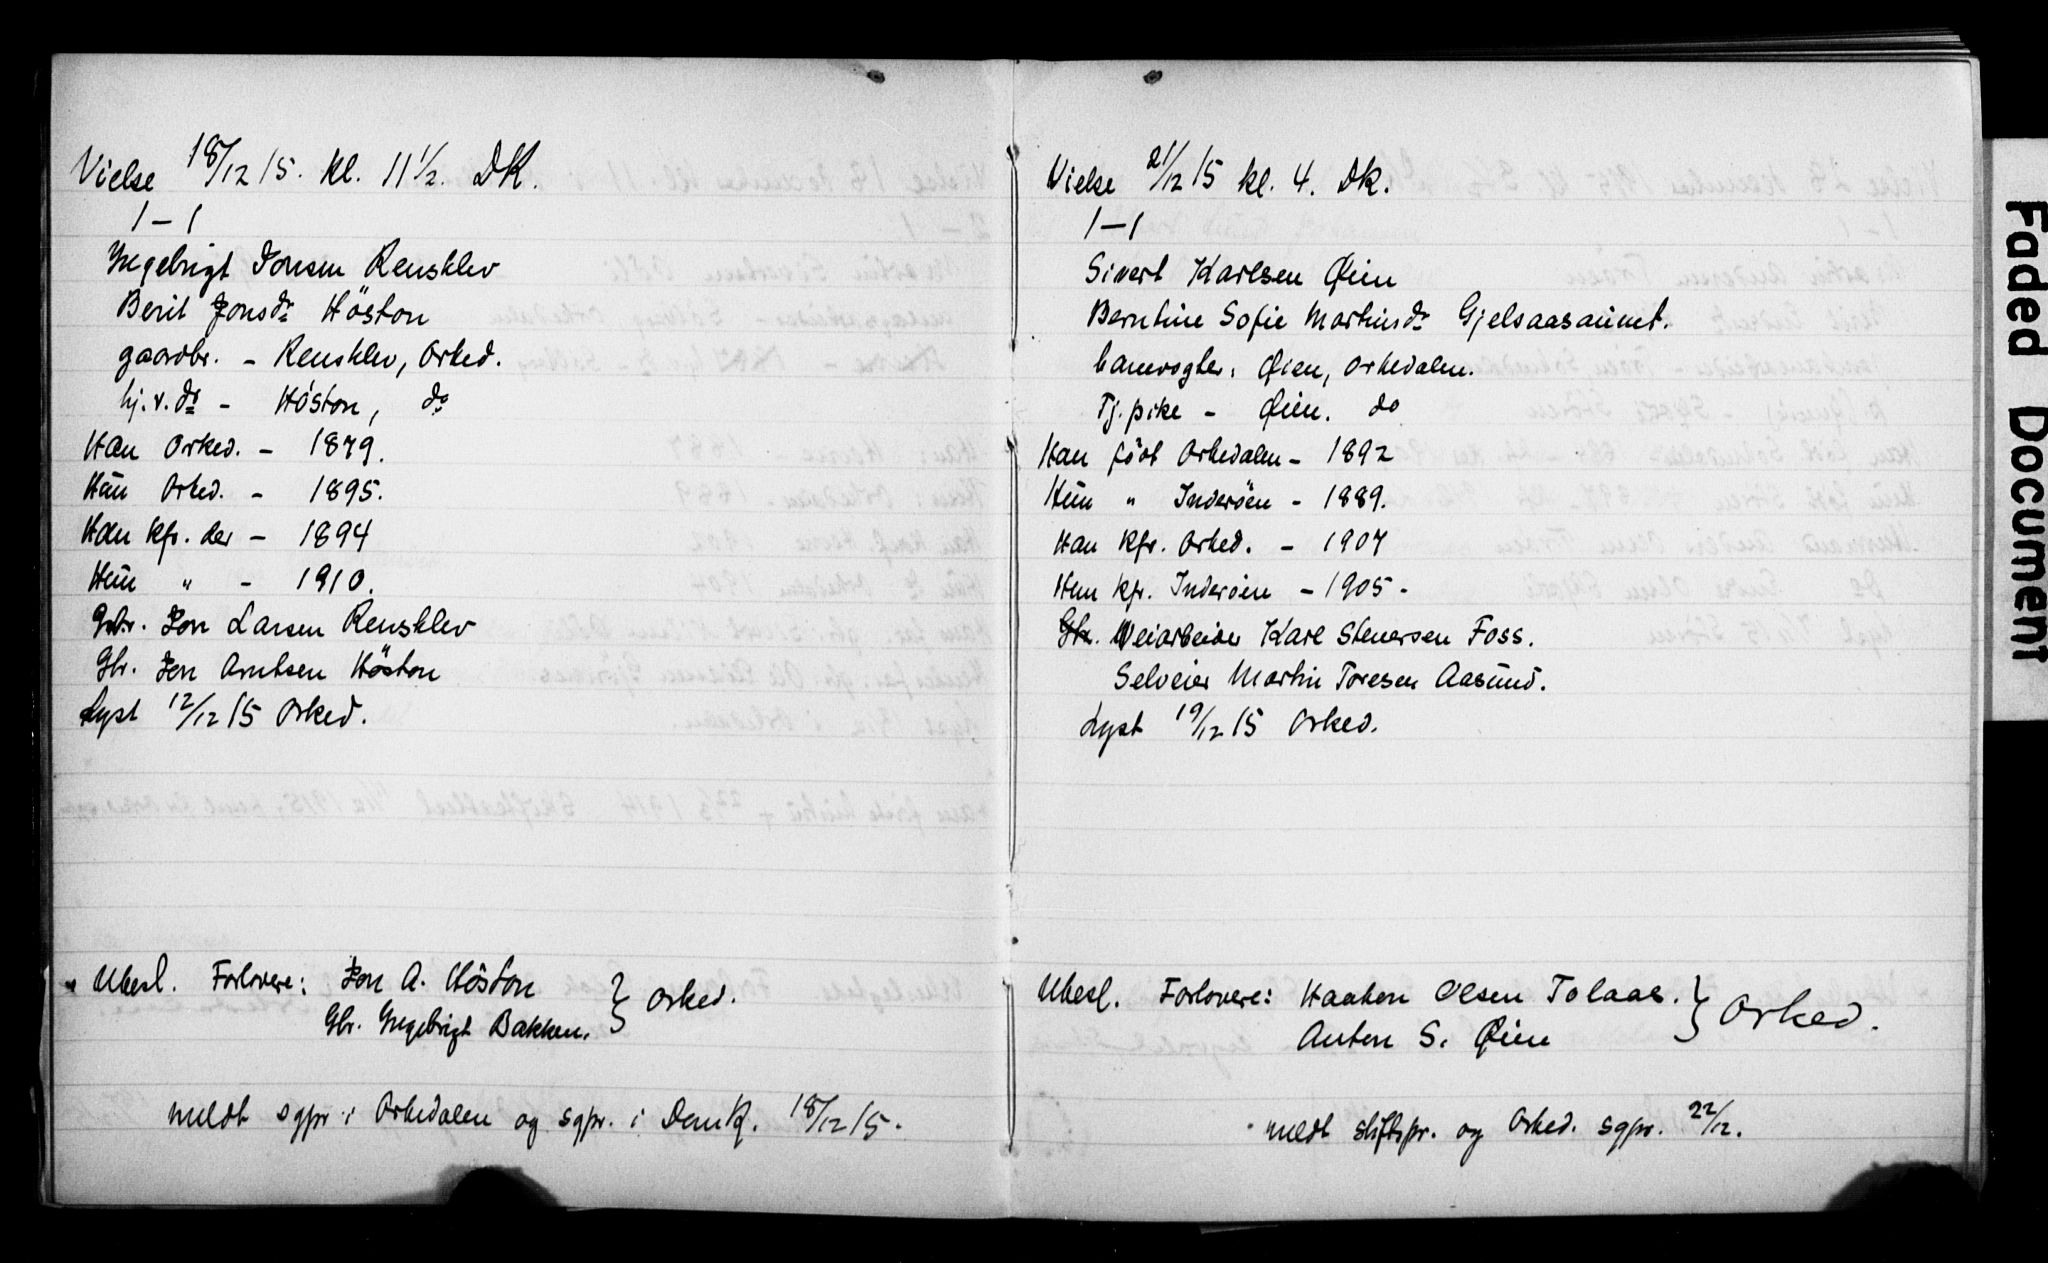 Vielse 18/12 15. kl. 11 1/2. DK.
1 – 1
Ingebrigt Jonsen Rensklev
Berit Jonsdr Höston
gaardbr. – Rensklev, Orked.
hj.v. dr – Höston, do
Han Orked. – 1879.
Hun Orked. – 1895.
Han kfr. der – 1894
Hun " – 1910.
Gbr. Jon Larsen Rensklev
Gbr. Jon Arntsen Höston
Lyst 12/12 15 Orked.
Ubesl. Forlovere: Jon A. Höston } Orked.
Gbr. Ingebrigt Bakken.
meldt sgpr i Orkedalen og sgpr. i Domk. 18/12 15.
Vielse 21/12 15 kl. 4. Dk.
1 – 1
Sivert Karlsen Øien
Berntine Sofie Martinsdr Gjelsaasaunet.
banevogter, Øien, Orkedalen.
Tj.pike – Øien. do
Han født Orkedalen – 1892
Hun " Inderøen – 1889.
Han kfr. Orked. – 1907
Hun kfr. Inderøen – 1905 –
Gbr. Veiarbeider Karl Stenersen Foss.
Selveier Martin Toresen Aasund.
Lyst 19/12 15 Orked.
Ubesl. Forlovere: Haakon Olsen Tolaas. } Orked.
Anton S. Øien
meldt stiftspr. og Orked. sgpr. 22/12.
Faded Document